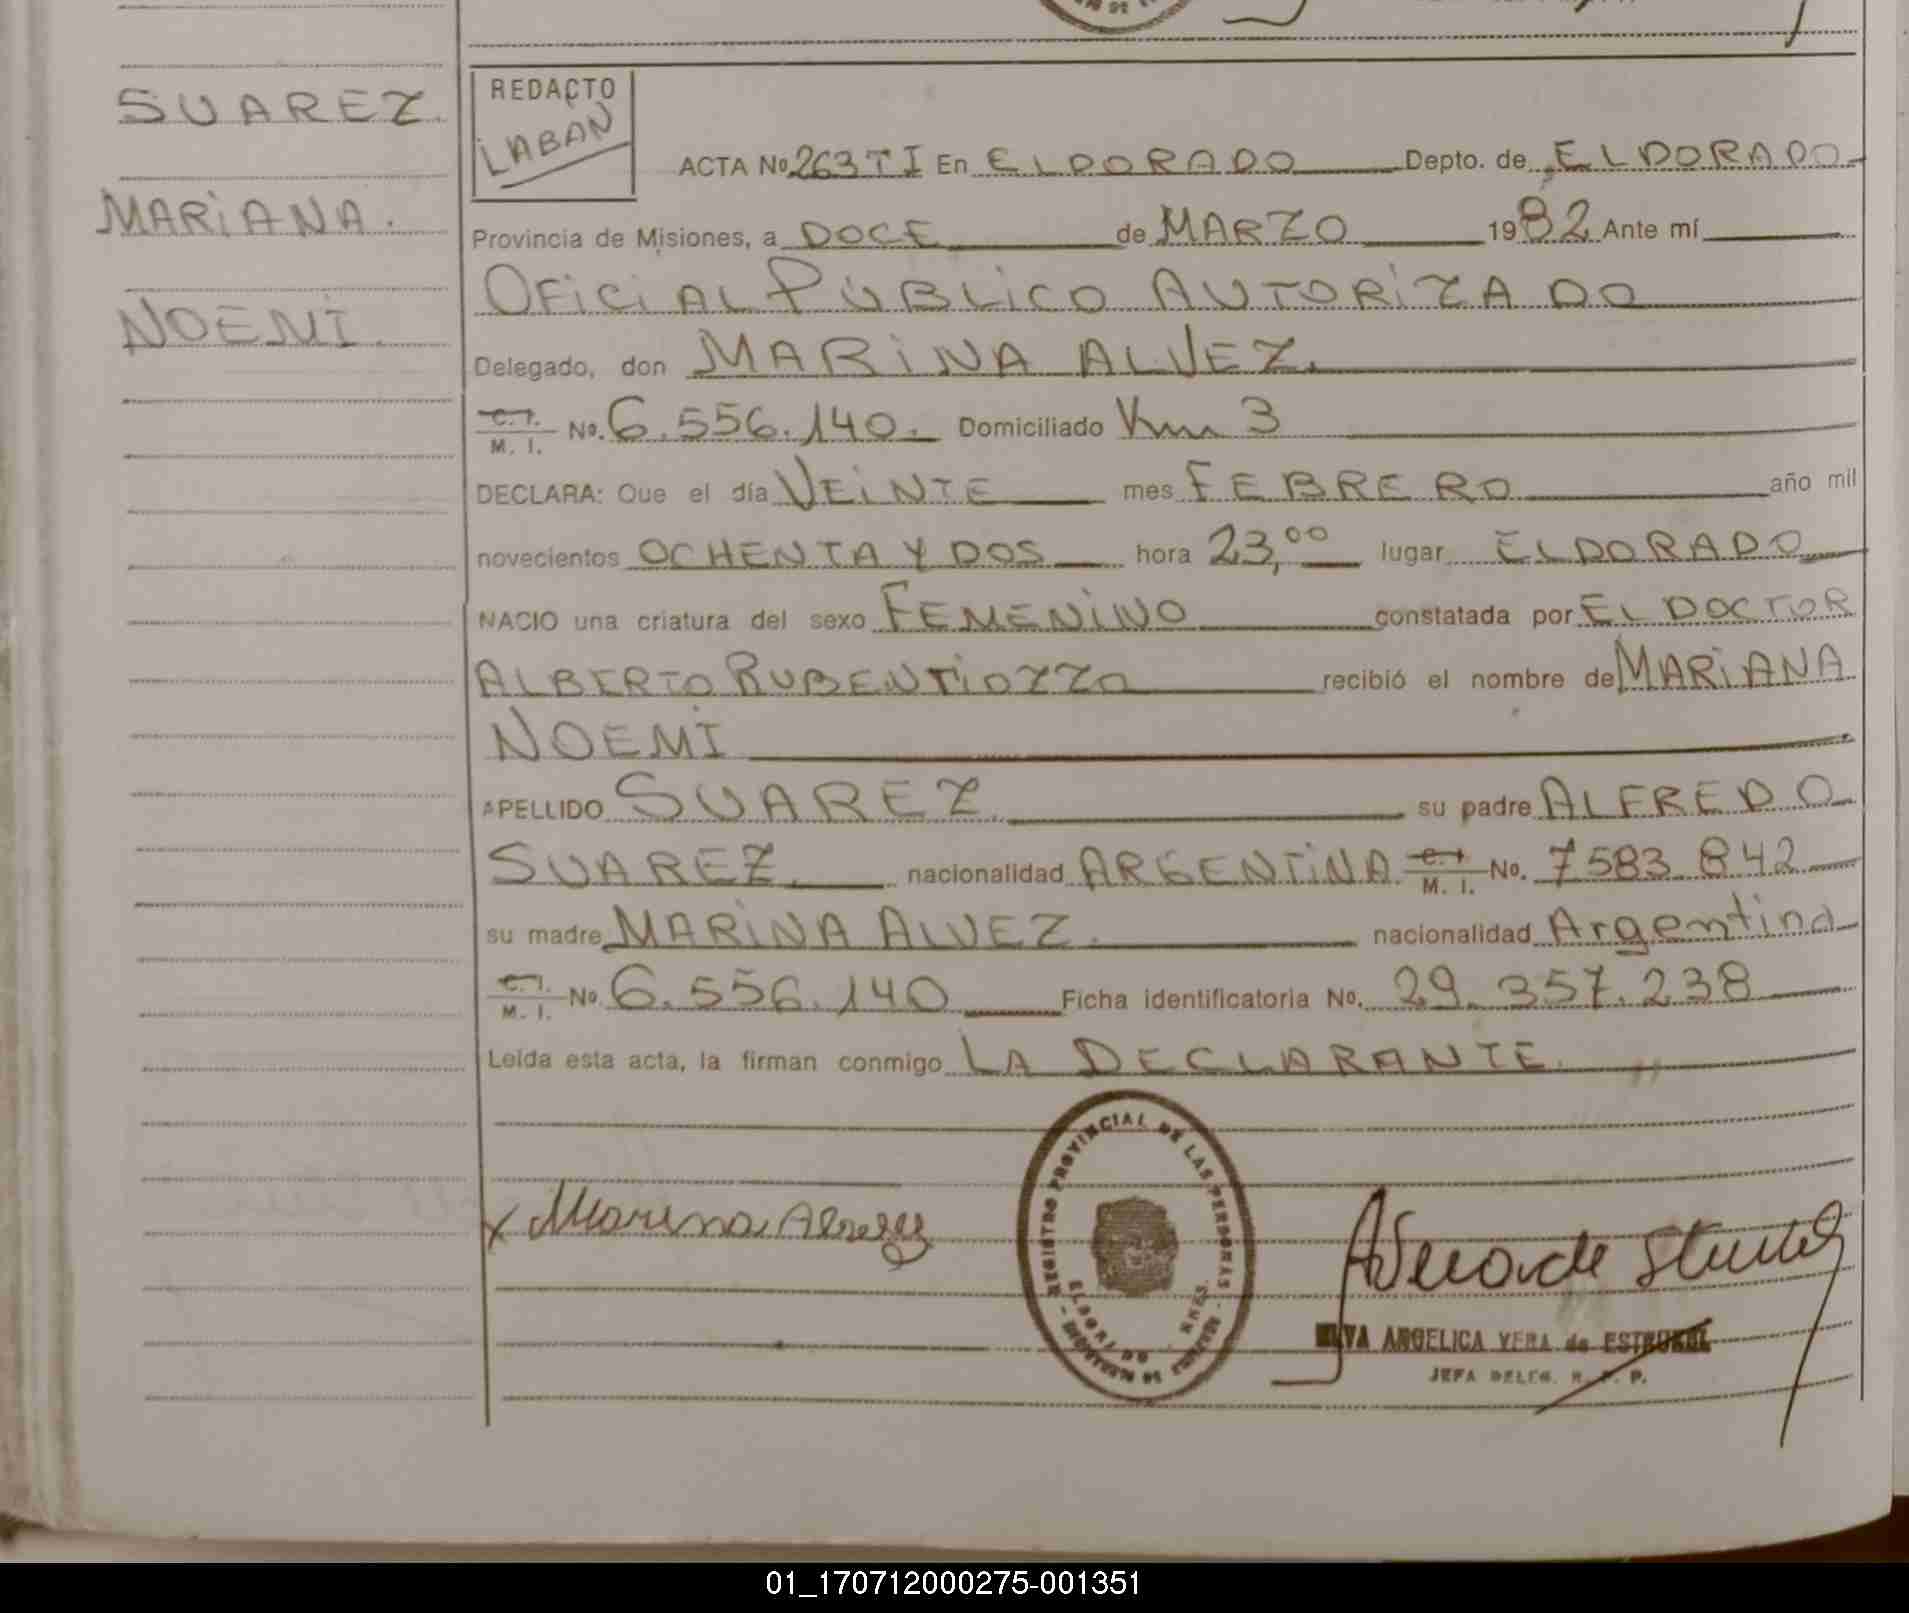 SUAREZ.
MARIANA.
NOEMI.
REDACTO
LABAN
ACTA No. 263 T I En ELDORADO Depto. de ELDORADO
Provincia de Misiones, a DOCE de MARZO 1982 Ante mí
OFICIAL PUBLICO AUTORIZADO
Delegado, don MARINA ALVEZ.
C. I. M. I. No. 6.556.140. Domiciliado Km 3
DECLARA: Que el día VEINTE mes FEBRERO año mil
novecientos OCHENTA Y DOS hora 23,00 lugar ELDORADO
NACIO una criatura del sexo FEMENINO constatada por EL DOCTOR
ALBERTO RUBEN TIOZZO recibió el nombre de MARIANA
NOEMI
APELLIDO SUAREZ. su padre ALFREDO
SUAREZ. nacionalidad ARGENTINA C. I. M. I. No. 7583.842
su madre MARINA ALVEZ. nacionalidad Argentina
C. I. M. I. No. 6.556.140 Ficha identificatoria No. 29.357.238
Leída esta acta, la firman conmigo LA DECLARANTE.
x Marina Alvez
REGISTRO PROVINCIAL DE LAS PERSONAS
ELDORADO MNES.
ANGELICA VERA de
JEFA DELEG. R. P. P.
01_170712000275-001351